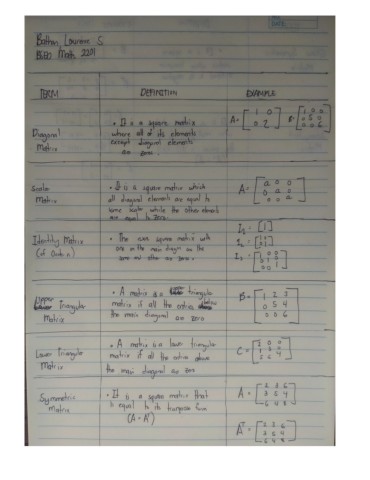 Bathan, Laurence S.
BSED Math 2201
TERM DEFINITION EXAMPLE
Diagonal
Matrix
• It is a square matrix
where all of its elements
except diagonal elements
are zero.
A = [ 1 0
0 2 ]
B = [ 1 0 0
0 5 0
0 0 6 ]
Scalar
Matrix
• It is a square matrix which
all diagonal elements are equal to
same scalar while the other element
are equal to zero.
A = [ a 0 0
0 a 0
0 0 a ]
Identity Matrix
(of Order n)
• The square matrix with
one in the main diagonal and the
are zero.
I₁ = [1]
Upper
Triangular
Matrix
• A matrix is a triangular
matrix if all the entries below
the main diagonal are zero
B = [ 1 2 3
0 5 4
0 0 6 ]
Lower Triangular
Matrix
• A matrix is a lower triangular
matrix if all the entries above
the main diagonal are zero
C =
Symmetric
Matrix
• It is a square matrix that
is equal to its transpose
(A = Aᵀ)
A = [ 2 3 6
3 5 4
6 4 8 ]
Aᵀ = [ 2 3 6
3 5 4
6 4 8 ]